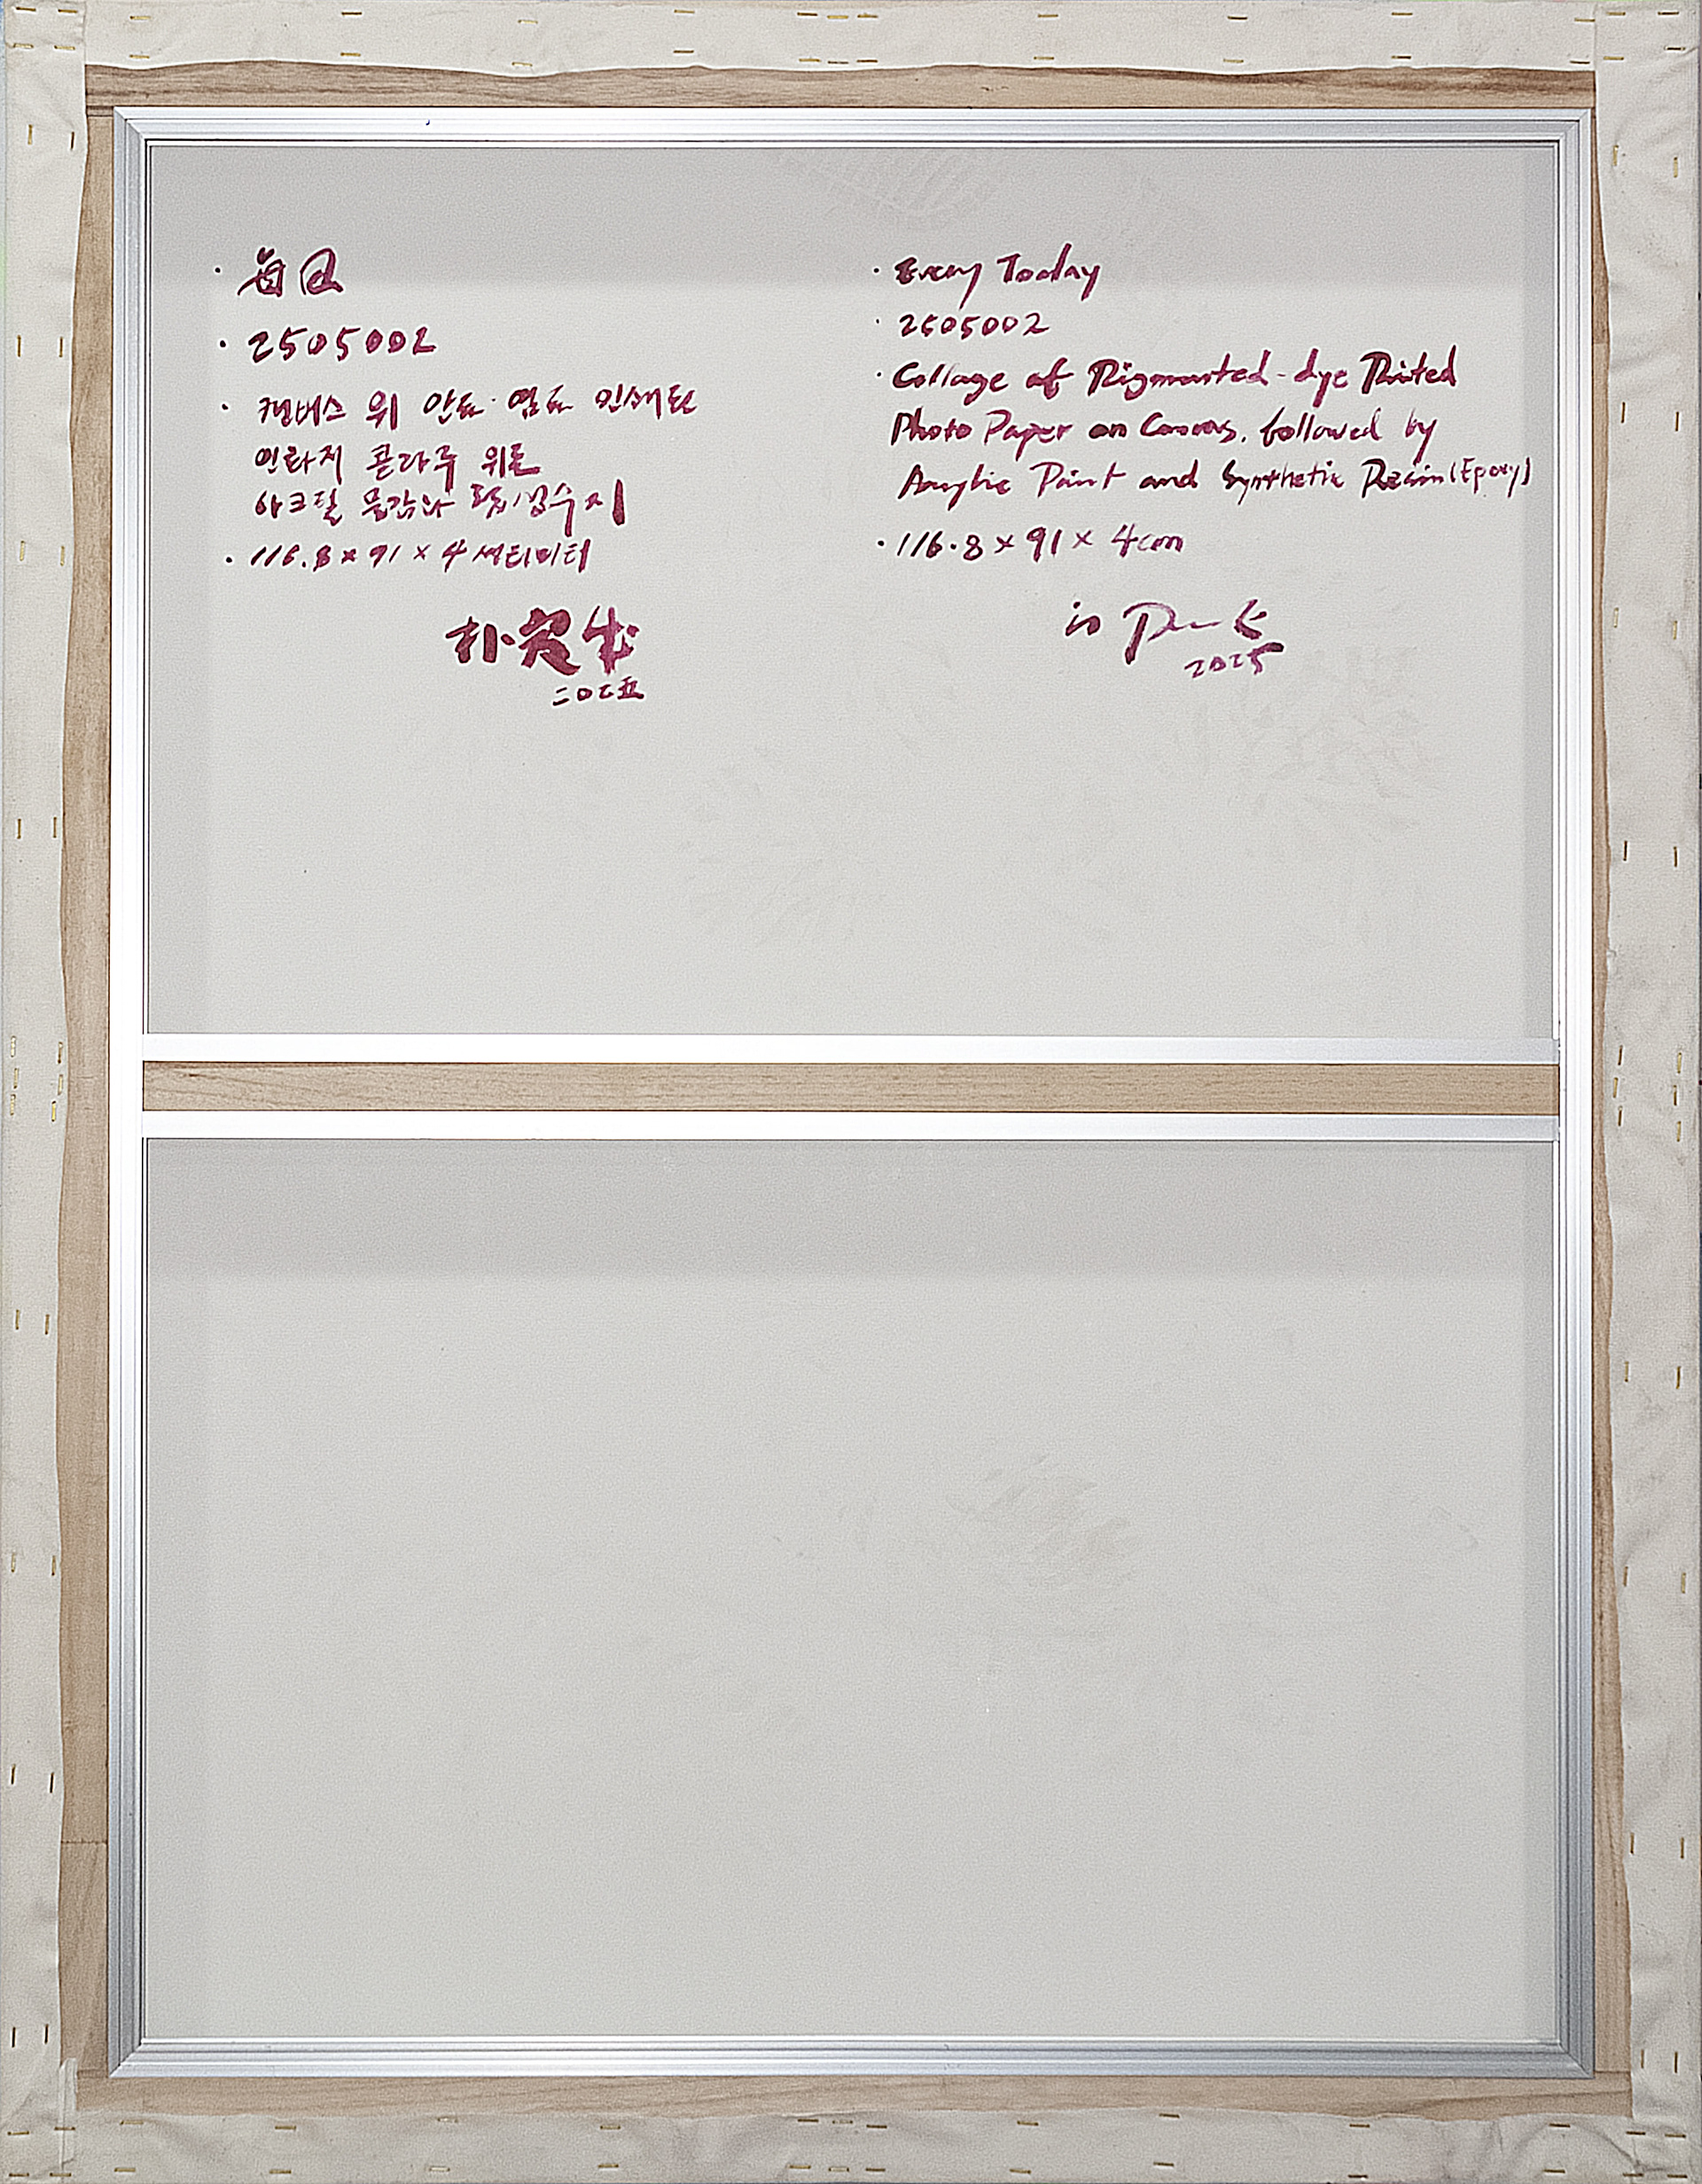 · 每日
· 2505002
· 캔버스 위 안료·염료 인쇄된
인화지 콜라주 위로
아크릴 물감과 합성수지
· 116.8 × 91 × 4 센티미터
朴
二〇二五
· Every Today
· 2505002
· Collage of Pigmented-dye Printed
Photo Paper on Canvas, followed by
Acrylic Paint and Synthetic Resin (Epoxy)
· 116.8 × 91 × 4cm
in Park
2025